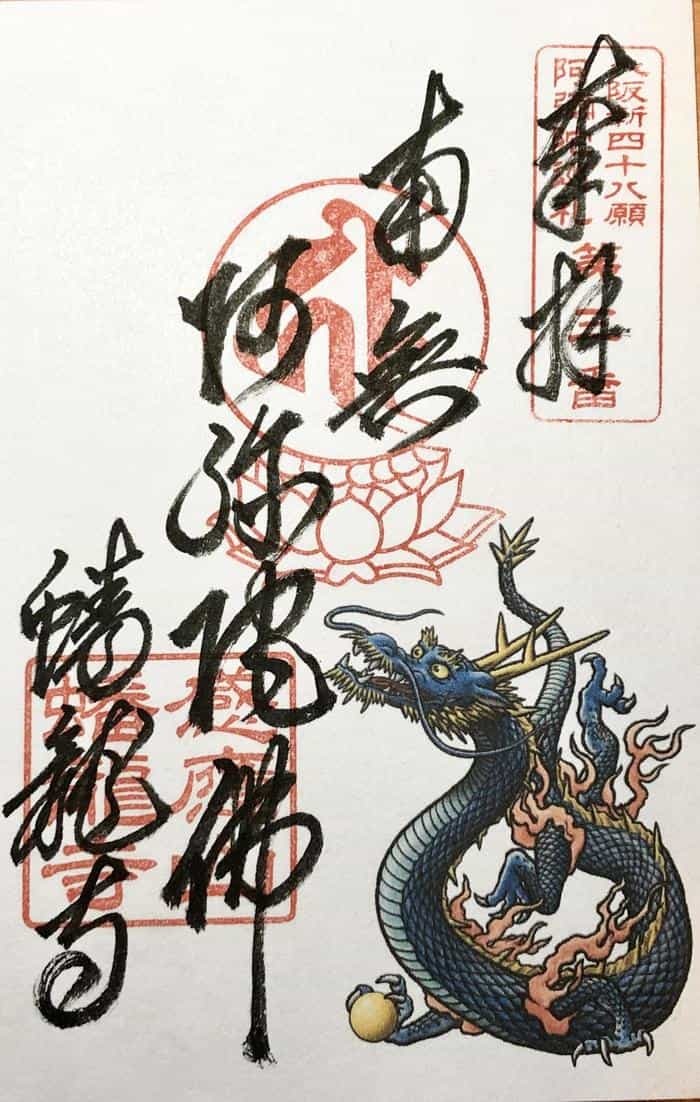 奉拝
大阪新四十八願
阿弥陀巡礼
第三番
南無
阿弥陀佛
感應山
蟠龍寺
蟠龍寺